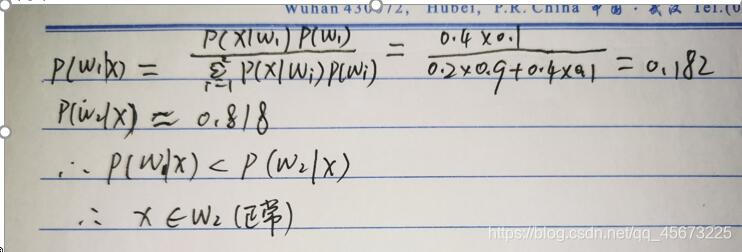 Wuhan 430072, Hubei, P.R. China 中国·武汉 Tel.(0
P(w₁|x) = P(x|w₁) P(w₁) / Σ²ᵢ₌₁ P(x|wᵢ)P(wᵢ) = 0.4×0.1 / 0.2×0.9+0.4×0.1 = 0.182
P(w₂|x) ≈ 0.818
∴ P(w₁|x) < P(w₂|x)
∴ x ∈ w₂ (正常)
https://blog.csdn.net/qq_45673225